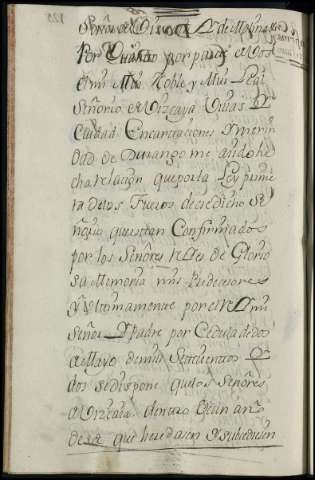 Señor de Vizcaya y de Molina
Por Quanto por parte de Vos
el mui Noble y Mui Leal
Señorio de Vizcaya Villas y
Ciudad Encartaciones y merin
dad de Durango me an dohe
cha relazion que por la Ley prime
ra de los Fueros de ese dicho Se
ñorio que estan Confirmados
por los Señores reies de Glorio
sa Memoria mis Predecesores
y Vltimamente por el rei mi
Señor y Padre por Cedula de dos
de Mayo de mil Setecientos y
dos se dispone que los Señores
de Vizcaia dentro de un año
que heredasen y subcediesen